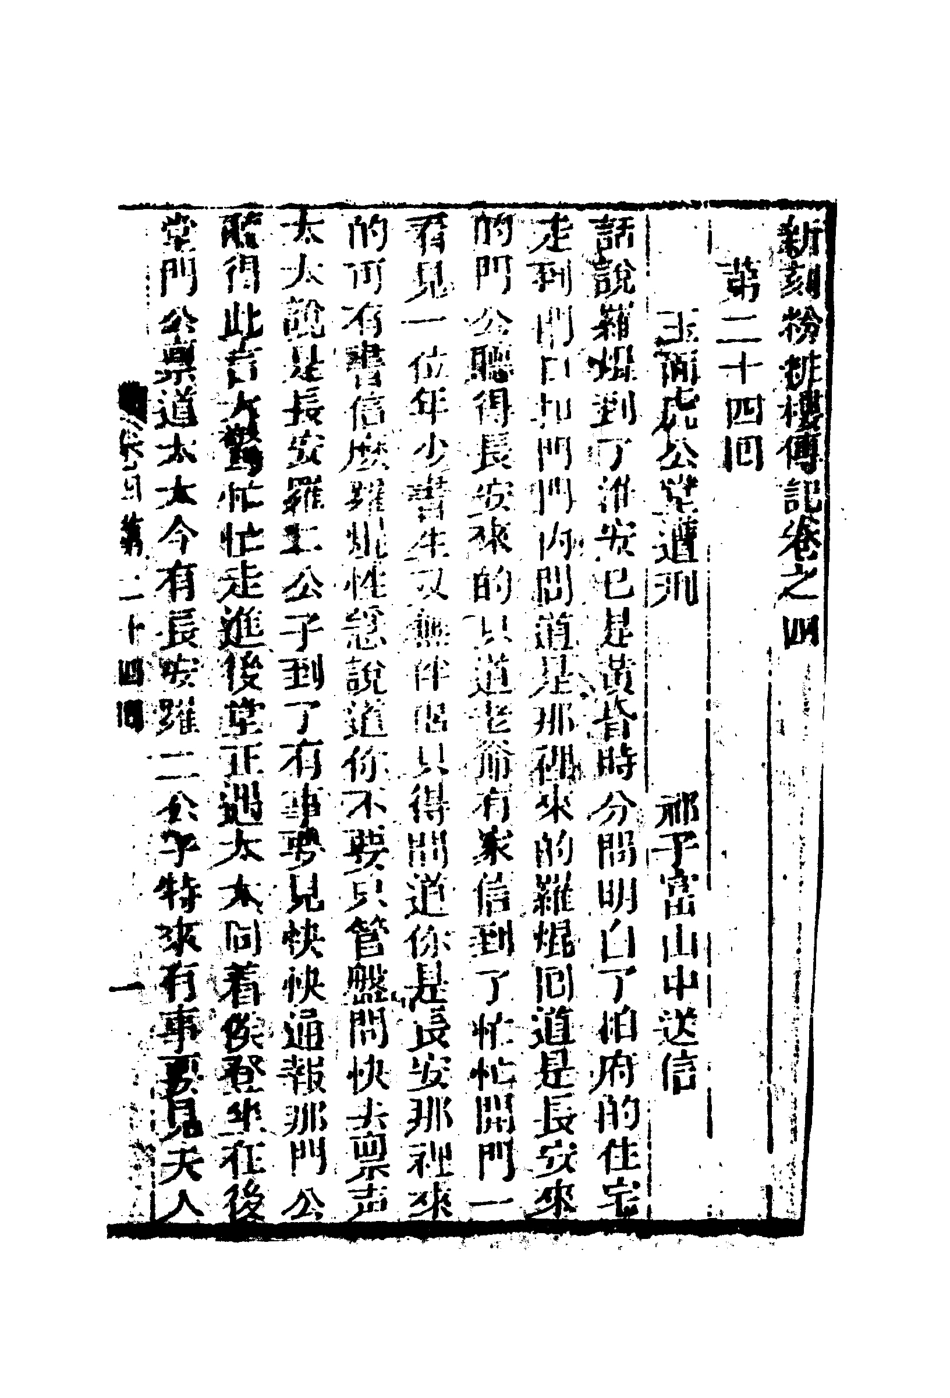 新刻粉粧樓傳記卷之四
第二十四囘
玉面虎公堂遭刑　祁子富山中送信
話說羅焜到了淮安已是黃昏時分問明白了柏府的住宅
走到門口扣門門內問道是那裡來的羅焜囘道是長安來
的門公聽得長安來的只道老爺有家信到了忙忙開門一
看見一位年少書生又無伴侶只得問道你是長安那裡來
的可有書信麽羅焜性急說道你不要只管盤問快去禀声
太太說是長安羅二公子到了有事要見快快通報那門公
聽得此言大驚忙忙走進後堂正遇太太同着侯登坐在後
堂門公禀道太太今有長安羅二公子特來有事要見夫人
卷四 第二十四囘 一